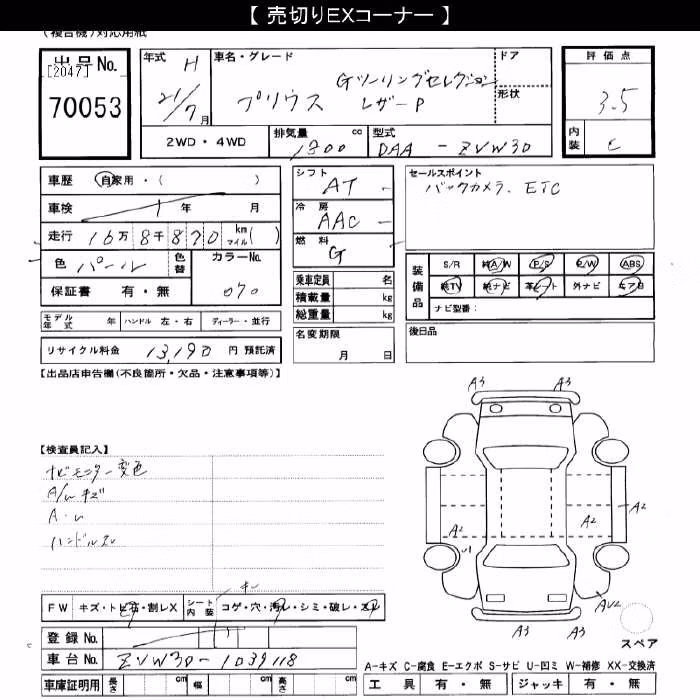 【 売切りEXコーナー 】
(複合機)対応用紙
出品No.
[2047]
70053
年式 H 21/7 月
車名・グレード プリウス Gツーリングセレクション レザーP
ドア
形状
評価点 3.5
内装 C
2WD・4WD
排気量 1800 cc
型式 DAA - ZVW30
車歴 自家用・( )
車検 1年 月
走行 16万8千870 km マイル( )
色 パール 色替 カラーNo. 070
保証書 有・無
モデル年式 年 ハンドル 左・右 ディーラー・並行
リサイクル料金 13,190 円 預託済
シフト AT
冷房 AAC
燃料 G
乗車定員 名
積載量 kg
総重量 kg
名変期限 月 日
セールスポイント
バックカメラ、ETC
装備品 S/R 純A/W P/S P/W ABS
純TV 純ナビ 革シート 外ナビ エアB
ナビ型番:
後日品
【出品店申告欄(不良箇所・欠品・注意事項等)】
【検査員記入】
ナビモニター変色
A/wキズ
A・U
ハンドルスレ
FW キズ・トビ石・割レX
シート内装 コゲ・穴・汚レ・シミ・破レ・スレ
登録No.
車台No. ZVW30-1039118
車庫証明用 長さ cm 幅 cm 高さ cm
A3 A3
A2
A2 A2
U1
AU2
A3 A3
スペア
A-キズ C-腐食 E-エクボ S-サビ U-凹ミ W-補修 XX-交換済
工具 有・無 ジャッキ 有・無